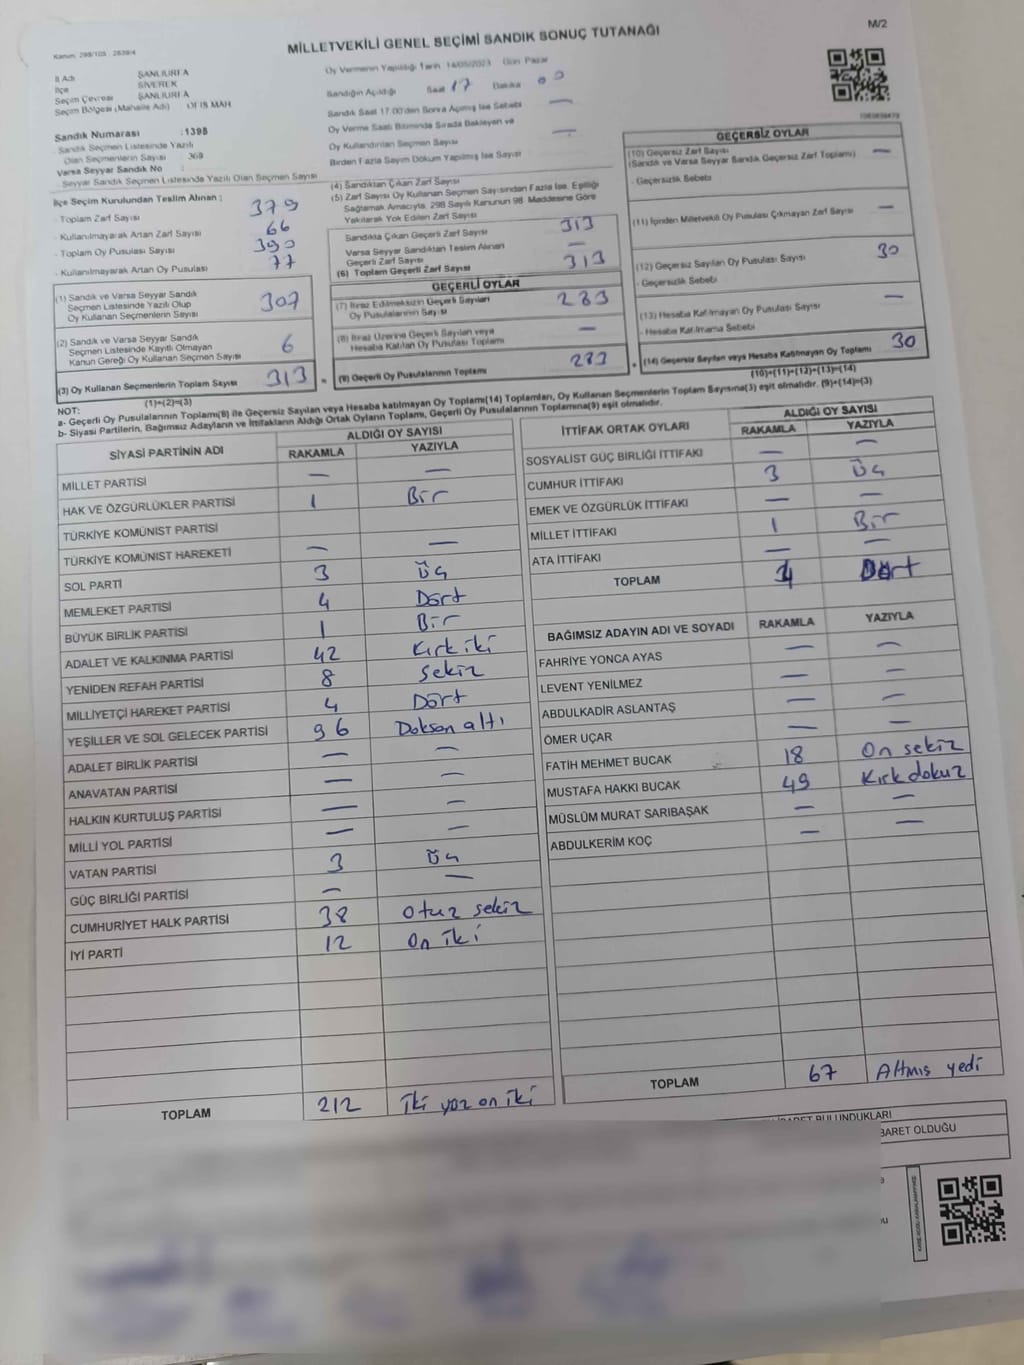 M/2
Kanun: 298/105 : 2839/4
MİLLETVEKİLİ GENEL SEÇİMİ SANDIK SONUÇ TUTANAĞI
İl Adı ŞANLIURFA
İlçe SİVEREK
Seçim Çevresi ŞANLIURFA
Seçim Bölgesi (Mahalle Adı) OFİS MAH
Sandık Numarası :1395
Sandık Seçmen Listesinde Yazılı
Olan Seçmenlerin Sayısı 369
Varsa Seyyar Sandık No :
Seyyar Sandık Seçmen Listesinde Yazılı Olan Seçmen Sayısı
Oy Vermenin Yapıldığı Tarih 14/05/2023 Gün Pazar
Sandığın Açıldığı Saat 17 Dakika 00
Sandık Saat 17.00'den Sonra Açılmış İse Sebebi —
Oy Verme Saati Bitiminde Sırada Bekleyen ve
Oy Kullandırılan Seçmen Sayısı —
Birden Fazla Sayım Döküm Yapılmış İse Sayısı
İlçe Seçim Kurulundan Teslim Alınan :
- Toplam Zarf Sayısı 379
- Kullanılmayarak Artan Zarf Sayısı 66
- Toplam Oy Pusulası Sayısı 390
- Kullanılmayarak Artan Oy Pusulası 77
(1) Sandık ve Varsa Seyyar Sandık
Seçmen Listesinde Yazılı Olup
Oy Kullanan Seçmenlerin Sayısı 307
(2) Sandık ve Varsa Seyyar Sandık
Seçmen Listesinde Kayıtlı Olmayan
Kanun Gereği Oy Kullanan Seçmen Sayısı 6
(3) Oy Kullanan Seçmenlerin Toplam Sayısı 313
(1)+(2)=(3)
(4) Sandıktan Çıkan Zarf Sayısı
(5) Zarf Sayısı Oy Kullanan Seçmen Sayısından Fazla İse, Eşitliği
Sağlamak Amacıyla, 298 Sayılı Kanunun 98. Maddesine Göre
Yakılarak Yok Edilen Zarf Sayısı
Sandıkta Çıkan Geçerli Zarf Sayısı 313
Varsa Seyyar Sandıktan Teslim Alınan
Geçerli Zarf Sayısı —
(6) Toplam Geçerli Zarf Sayısı 313
GEÇERLİ OYLAR
(7) İtiraz Edilmeksizin Geçerli Sayılan
Oy Pusulalarının Sayısı 283
(8) İtiraz Üzerine Geçerli Sayılan veya
Hesaba Katılan Oy Pusulası Toplamı —
(9) Geçerli Oy Pusulalarının Toplamı 283
GEÇERSİZ OYLAR
(10) Geçersiz Zarf Sayısı —
(Sandık ve Varsa Seyyar Sandık Geçersiz Zarf Toplamı)
- Geçersizlik Sebebi
(11) İçinden Milletvekili Oy Pusulası Çıkmayan Zarf Sayısı —
(12) Geçersiz Sayılan Oy Pusulası Sayısı 30
- Geçersizlik Sebebi
(13) Hesaba Katılmayan Oy Pusulası Sayısı —
- Hesaba Katılmama Sebebi
(14) Geçersiz Sayılan veya Hesaba Katılmayan Oy Toplamı 30
(10)+(11)+(12)+(13)=(14)
NOT:
a- Geçerli Oy Pusulalarının Toplamı(9) ile Geçersiz Sayılan veya Hesaba katılmayan Oy Toplamı(14) Toplamları, Oy Kullanan Seçmenlerin Toplam Sayısına(3) eşit olmalıdır. (9)+(14)=(3)
b- Siyasi Partilerin, Bağımsız Adayların ve İttifakların Aldığı Ortak Oyların Toplamı, Geçerli Oy Pusulalarının Toplamına(9) eşit olmalıdır.
SİYASİ PARTİNİN ADI ALDIĞI OY SAYISI
RAKAMLA YAZIYLA
MİLLET PARTİSİ — —
HAK VE ÖZGÜRLÜKLER PARTİSİ 1 Bir
TÜRKİYE KOMÜNİST PARTİSİ
TÜRKİYE KOMÜNİST HAREKETİ — —
SOL PARTİ 3 Üç
MEMLEKET PARTİSİ 4 Dört
BÜYÜK BİRLİK PARTİSİ 1 Bir
ADALET VE KALKINMA PARTİSİ 42 Kırk iki
YENİDEN REFAH PARTİSİ 8 Sekiz
MİLLİYETÇİ HAREKET PARTİSİ 4 Dört
YEŞİLLER VE SOL GELECEK PARTİSİ 96 Doksan altı
ADALET BİRLİK PARTİSİ — —
ANAVATAN PARTİSİ — —
HALKIN KURTULUŞ PARTİSİ — —
MİLLİ YOL PARTİSİ — —
VATAN PARTİSİ 3 Üç
GÜÇ BİRLİĞİ PARTİSİ — —
CUMHURİYET HALK PARTİSİ 38 Otuz sekiz
İYİ PARTİ 12 On iki
TOPLAM 212 İki yüz on iki
İTTİFAK ORTAK OYLARI ALDIĞI OY SAYISI
RAKAMLA YAZIYLA
SOSYALİST GÜÇ BİRLİĞİ İTTİFAKI — —
CUMHUR İTTİFAKI 3 Üç
EMEK VE ÖZGÜRLÜK İTTİFAKI — —
MİLLET İTTİFAKI 1 Bir
ATA İTTİFAKI — —
TOPLAM 4 Dört
BAĞIMSIZ ADAYIN ADI VE SOYADI RAKAMLA YAZIYLA
FAHRİYE YONCA AYAS — —
LEVENT YENİLMEZ — —
ABDULKADİR ASLANTAŞ — —
ÖMER UÇAR — —
FATİH MEHMET BUCAK 18 On sekiz
MUSTAFA HAKKI BUCAK 49 Kırk dokuz
MÜSLÜM MURAT SARIBAŞAK — —
ABDULKERİM KOÇ — —
TOPLAM 67 Altmış yedi
BULUNDUKLARI
BARET OLDUĞU